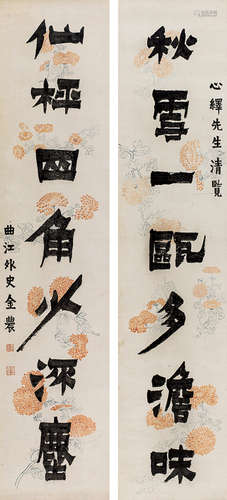 心繹先生清覽
秋雪一甌多澹味
仙枰四角少深塵
曲江外史金農